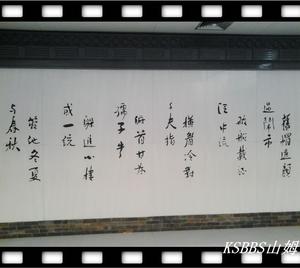 舊帽遮顏
過鬧市
破船載酒
泛中流
橫眉冷對
千夫指
俯首甘為
孺子牛
躲進小樓
成一統
管他冬夏
与春秋
KSBBS山姆